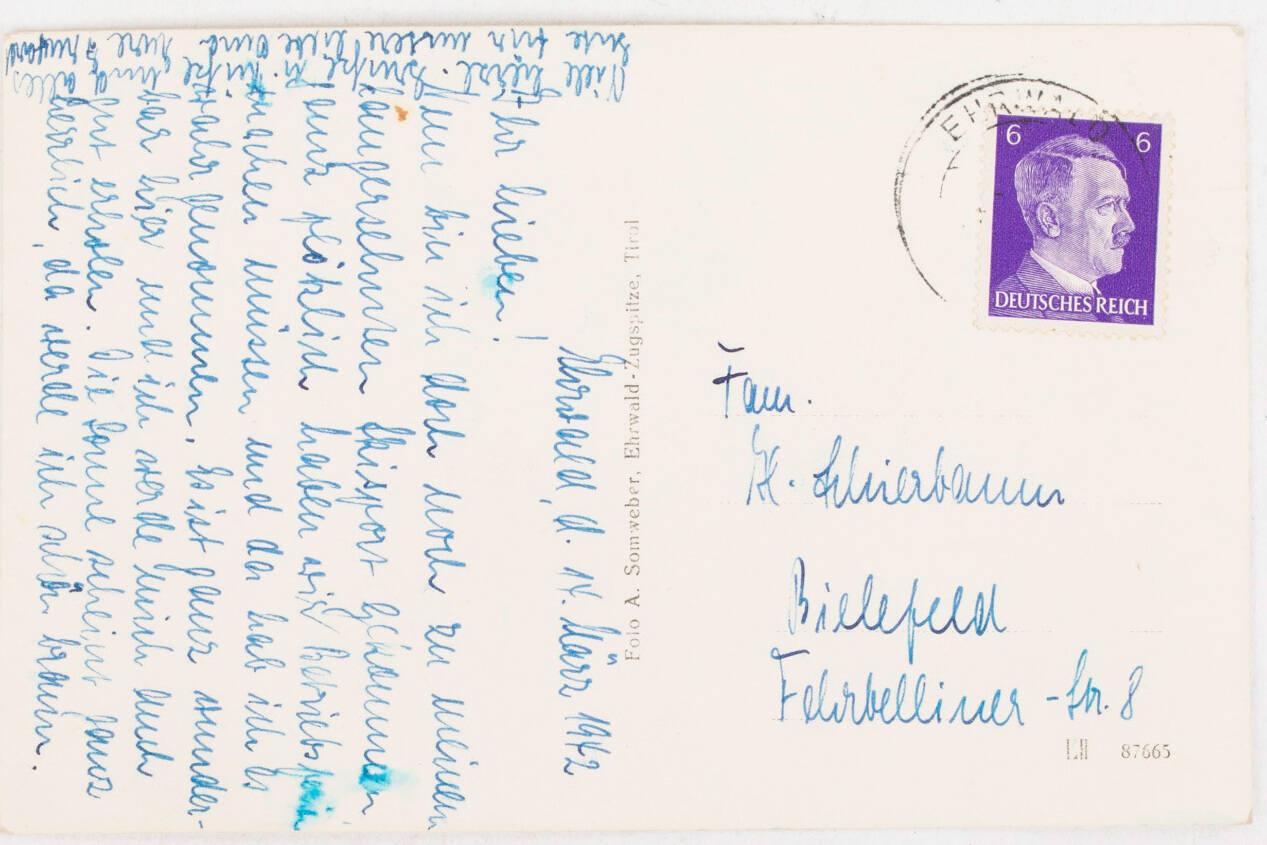 Ehrwald, d. 14. März 1942
Ihr Lieben!
Nun bin ich doch noch zu meinem
langersehnten Skisport gekommen.
Ganz plötzlich haben wir Betriebsferien
machen müssen und da hab ich es
wahr genommen. Es ist ganz wunder-
bar hier und ich werde mich auch
gut erholen. Die Sonne scheint ganz
herrlich, da werde ich schön braun.
Viele herzl. Grüße
Foto A. Somweber, Ehrwald-Zugspitze, Tirol
EHRWALD
6 6
DEUTSCHES REICH
Fam.
H. Schierbaum
Bielefeld
Fehrbelliner-Str. 8
87665